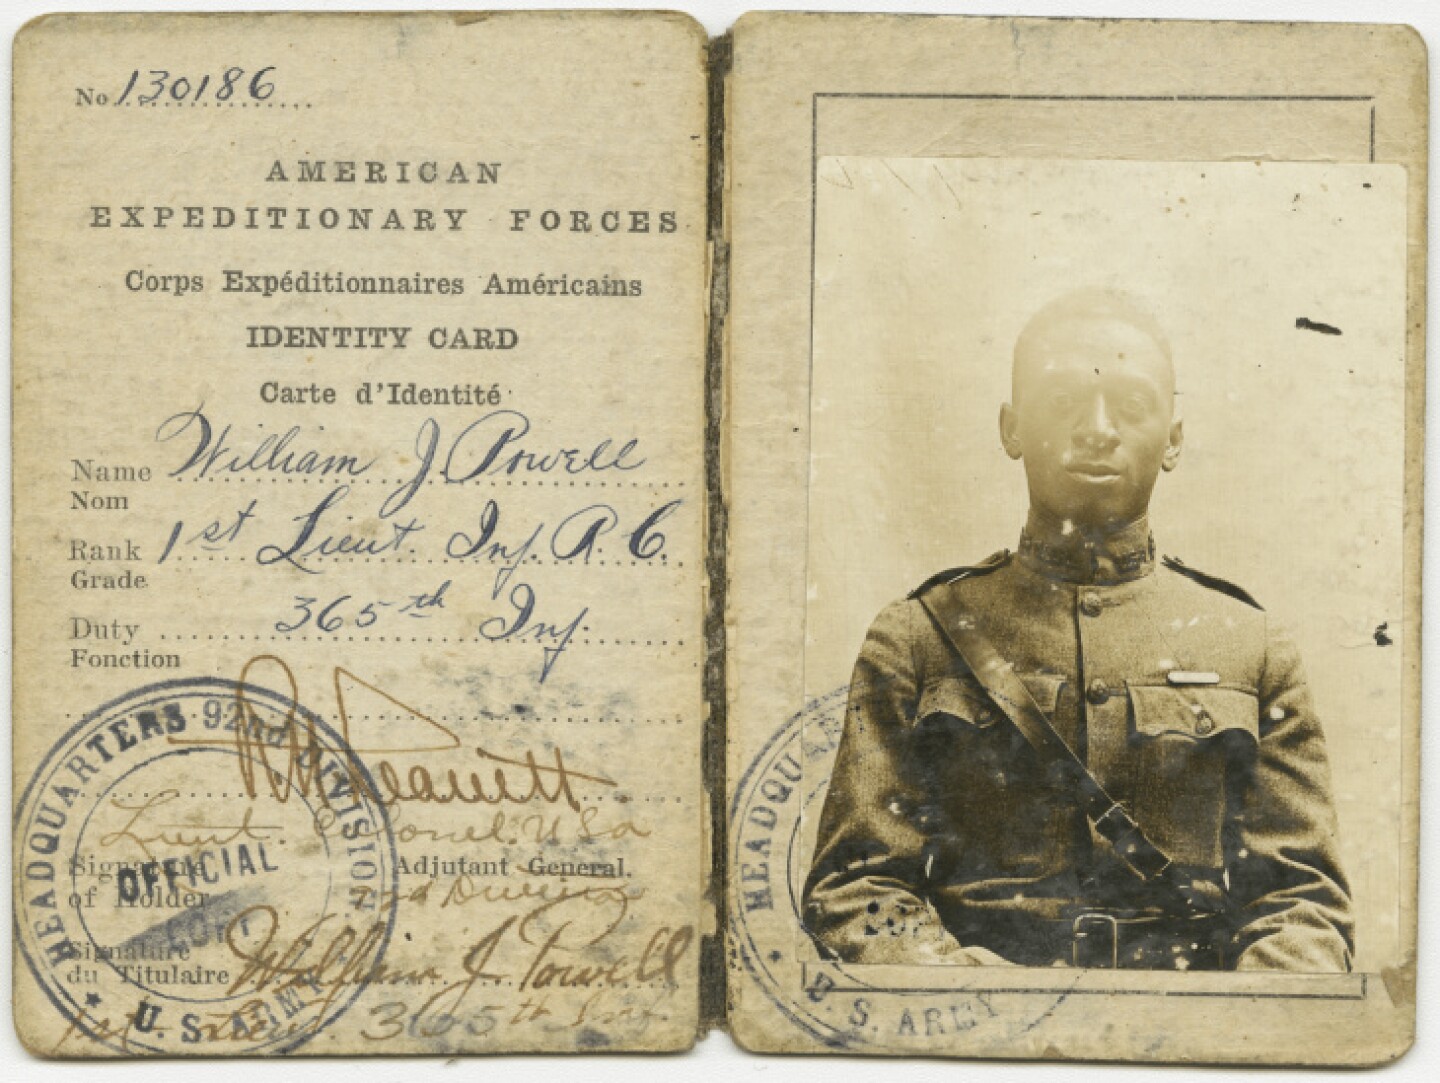 No 130186
AMERICAN
EXPEDITIONARY FORCES
Corps Expéditionnaires Américains
IDENTITY CARD
Carte d'Identité
Name William J. Powell
Nom
Rank 1st Lieut. Inf. R. C.
Grade
Duty 365th Inf.
Fonction
HEADQUARTERS 92nd DIVISION
Lieut. Colonel. USA
Signature Adjutant General.
of Holder Division
OFFICIAL
COPY
Signature
du Titulaire William J. Powell
1st Lieut. 365th Inf.
U. S. ARMY
HEADQUAR
U. S. ARMY